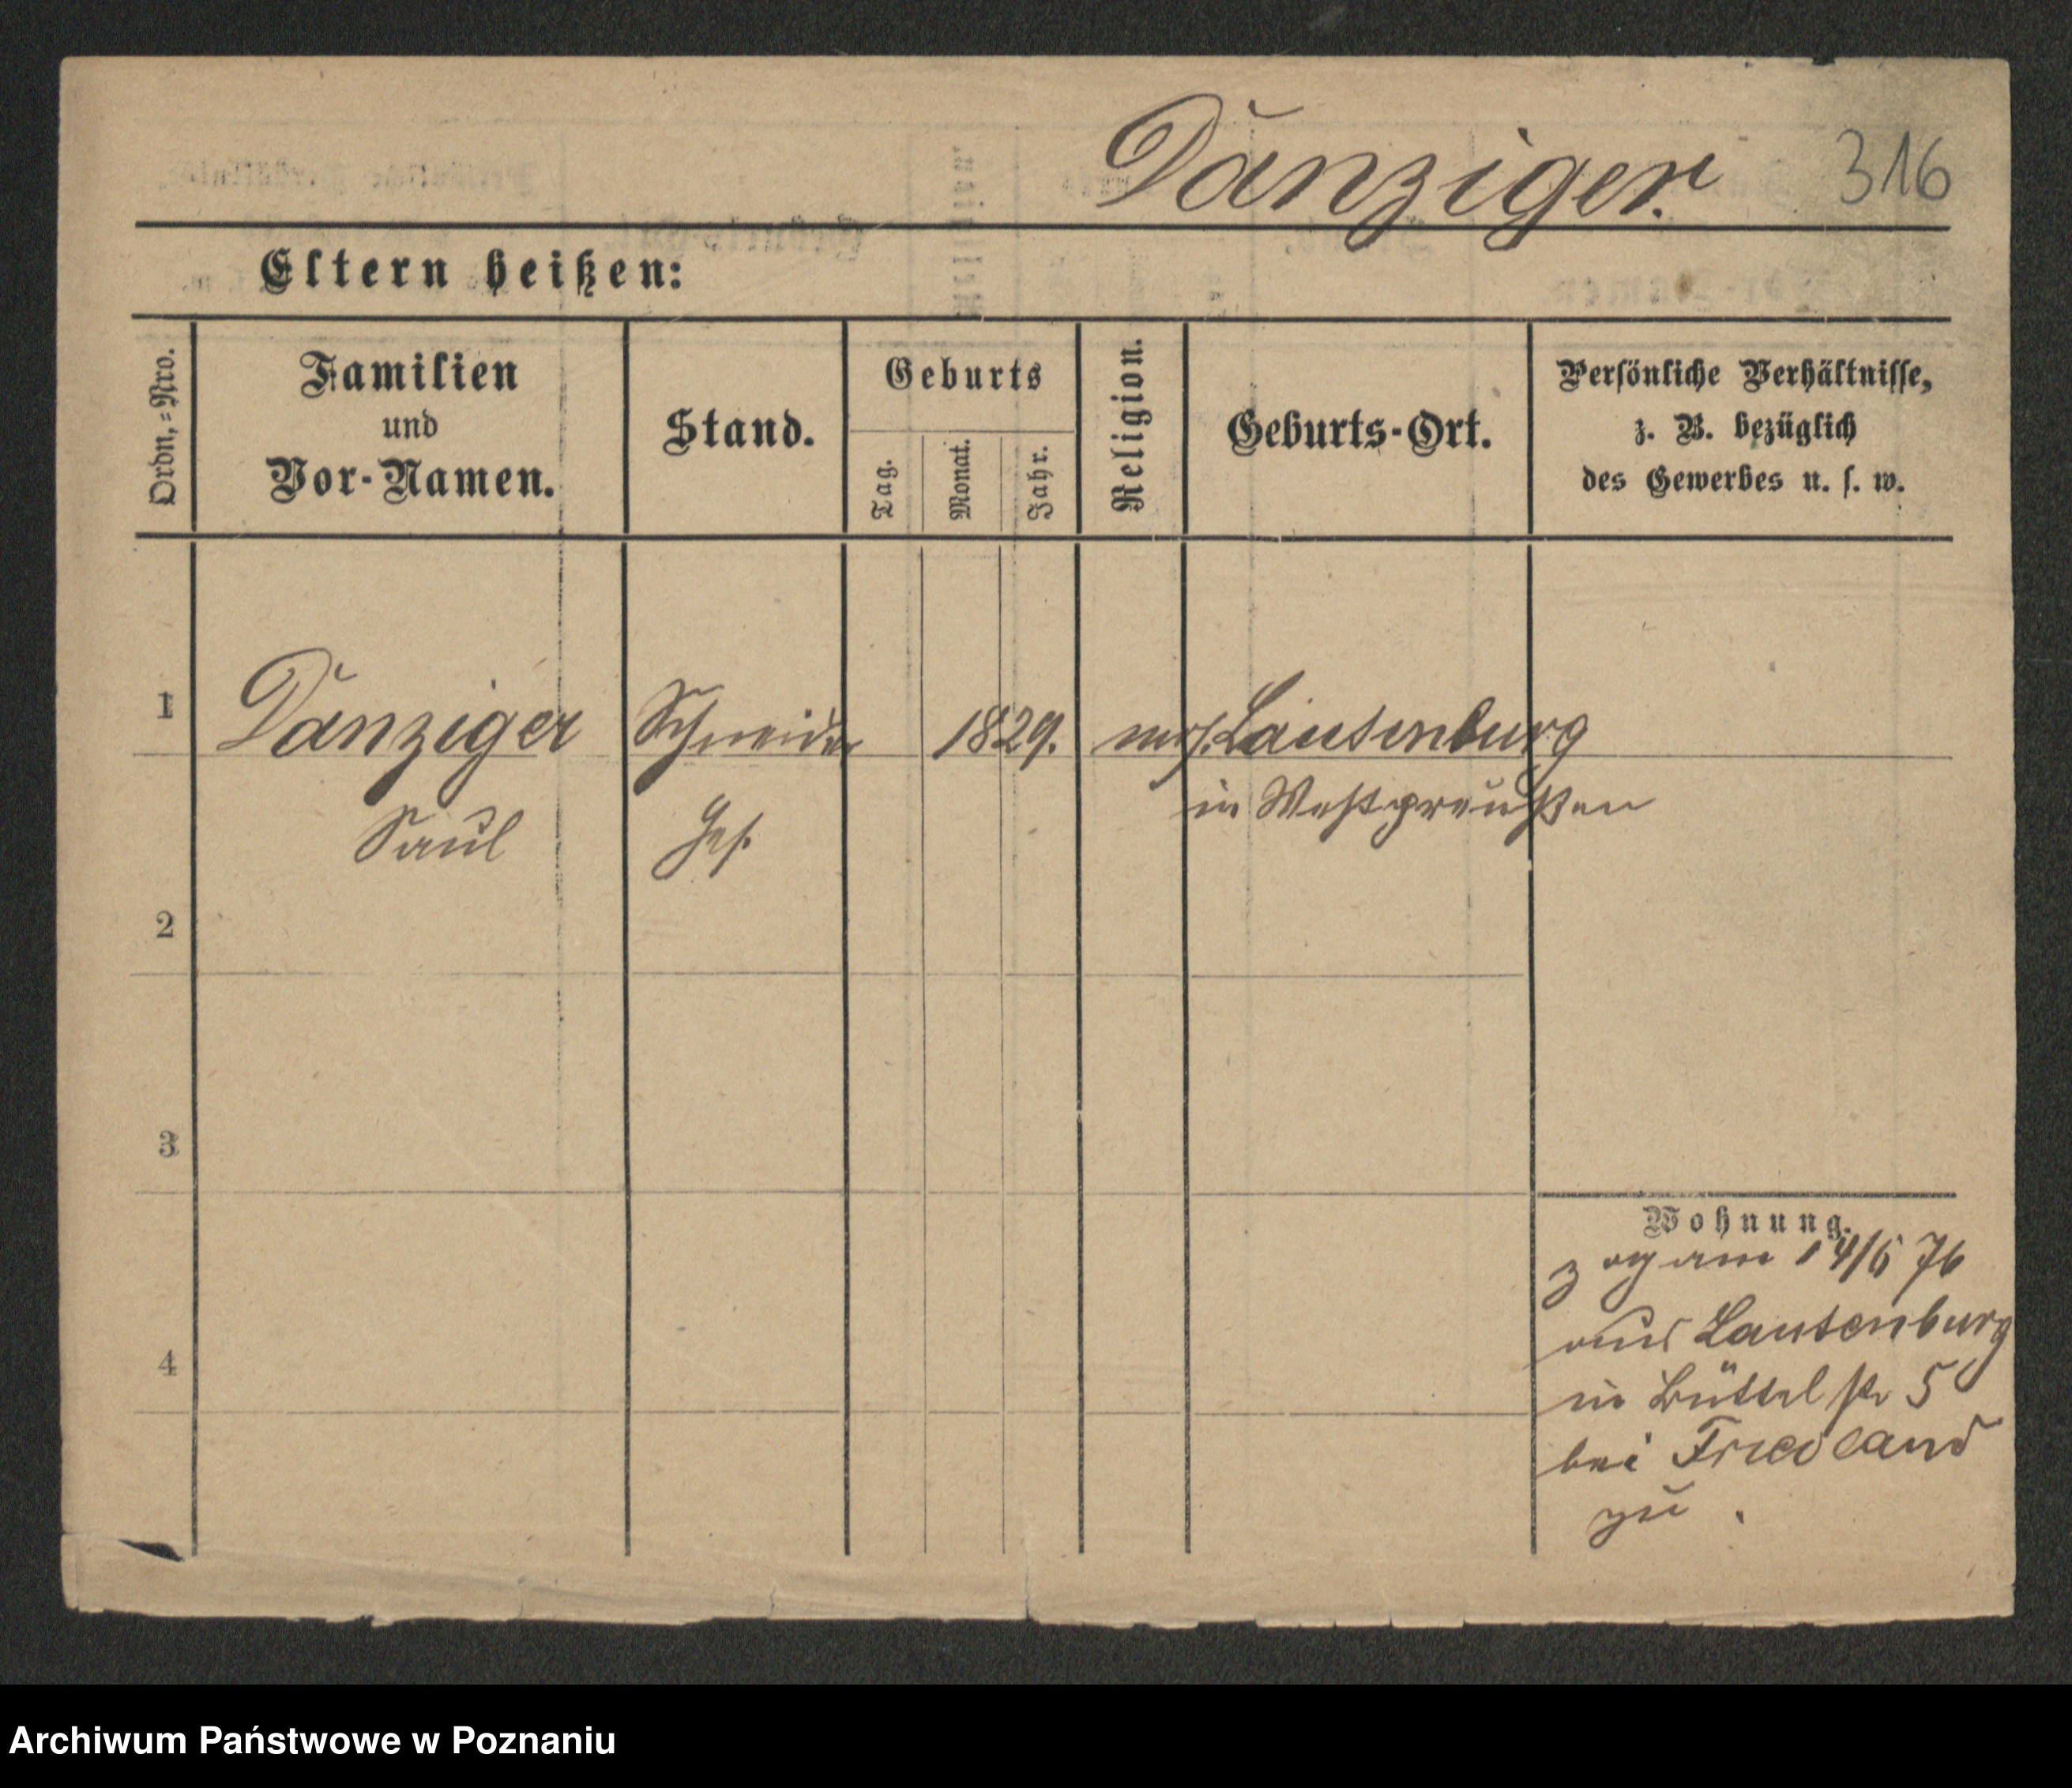 Danziger. 316
Eltern heißen:
Ordn.=Nro.
Familien
und
Vor-Namen.
Stand.
Geburts
Tag.
Monat.
Jahr.
Religion.
Geburts-Ort.
Persönliche Verhältnisse,
z. B. bezüglich
des Gewerbes u. s. w.
1 Danziger Schneider 1829. mos. Lautenburg
in Westpreußen
Saul Ges.
2
3
4
Wohnung.
zog am 14/6 76
aus Lautenburg
in Büttel str 5
bei Friedland
zu.
Archiwum Państwowe w Poznaniu